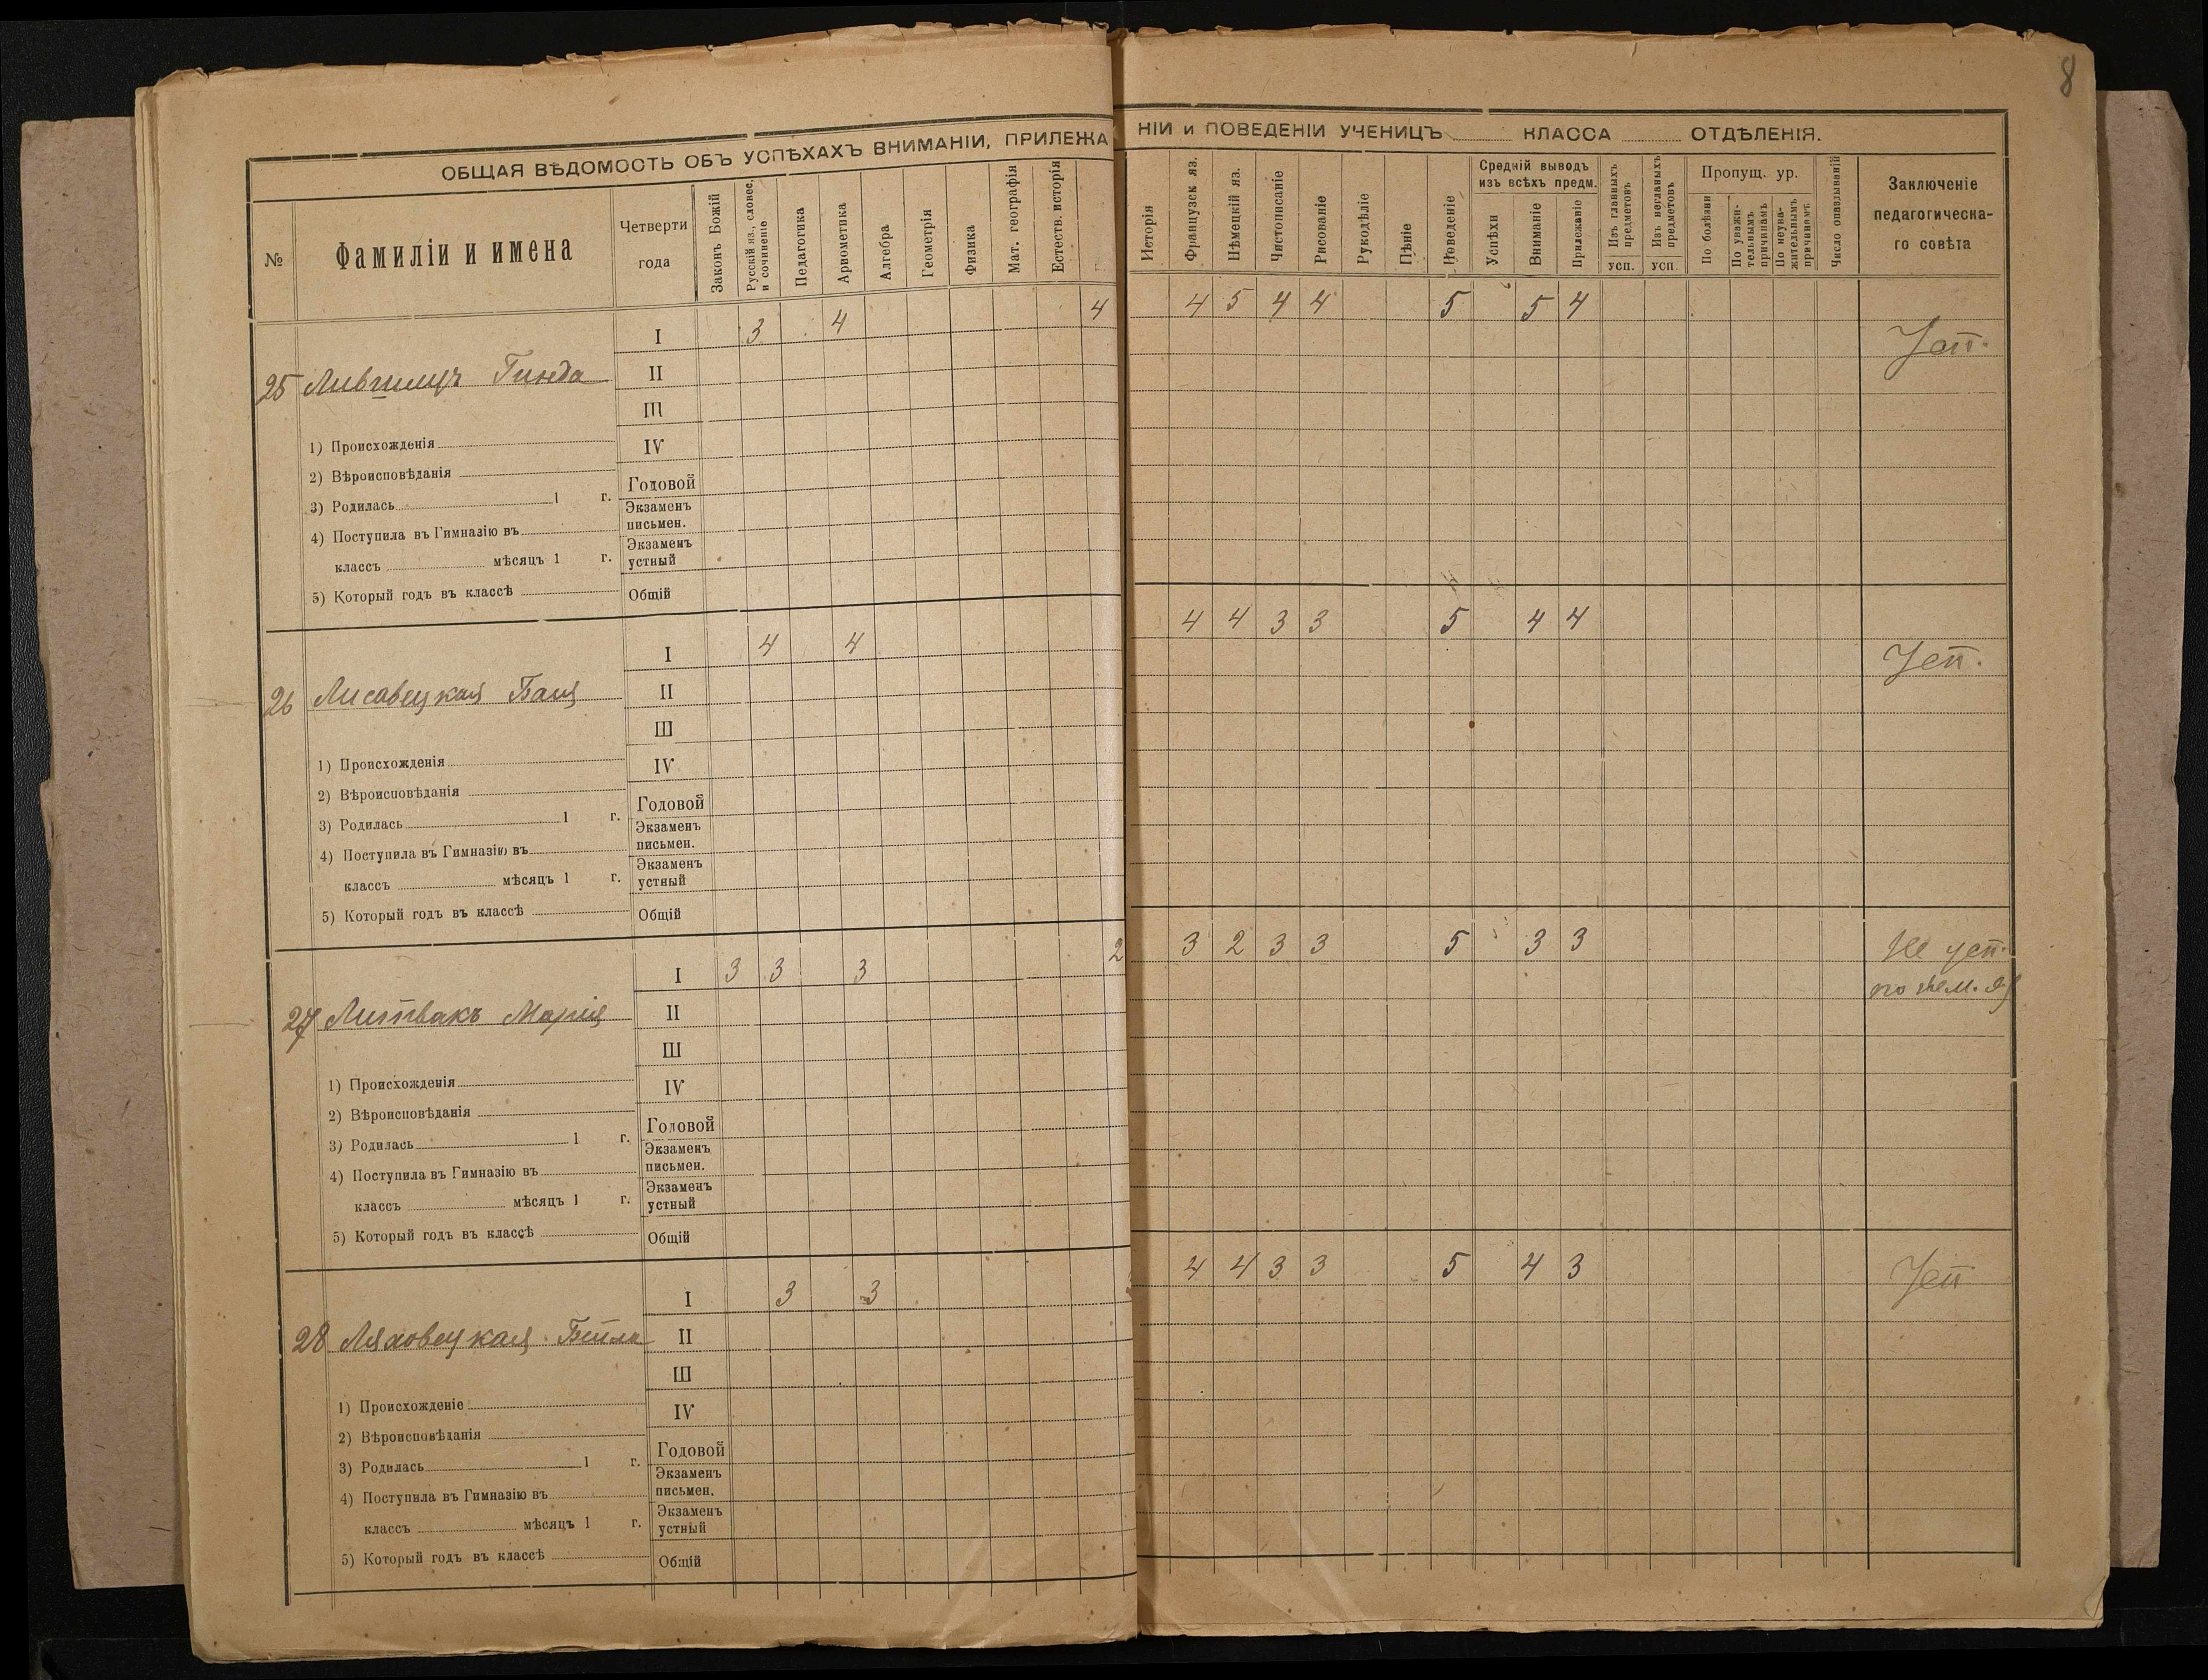 8
ОБЩАЯ ВѢДОМОСТЬ ОБЪ УСПѢХАХЪ ВНИМАНІИ, ПРИЛЕЖА
НІИ и ПОВЕДЕНІИ УЧЕНИЦЪ КЛАССА ОТДѢЛЕНІЯ.
№
Фамиліи и имена
Четверти
года
Законъ Божій
Русскій яз., словес.
и сочиненіе
Педагогика
Ариѳметика
Алгебра
Геометрія
Физика
Мат. географія
Естеств. исторія
Исторія
Французск яз.
Нѣмецкій яз.
Чистописаніе
Рисованіе
Рукодѣліе
Пѣніе
Поведеніе
Средній выводъ
изъ всѣхъ предм.
Успѣхи
Вниманіе
Прилежаніе
Изъ главныхъ
предметовъ
усп.
Изъ неглавныхъ
предметовъ
усп.
Пропущ. ур.
По болѣзни
По уважи-
тельнымъ
причинамъ
По неува-
жительнымъ
причинамъ
Число опаздываній
Заключеніе
педагогическа-
го совѣта
25 Лившицъ Гинда
I 3 4 4 4 5 4 4 5 5 4
Усп.
II
III
1) Происхожденія
IV
2) Вѣроисповѣданія
Годовой
3) Родилась 1 г.
Экзаменъ
письмен.
4) Поступила въ Гимназію въ
Экзаменъ
устный
классъ мѣсяцъ 1 г.
5) Который годъ въ классѣ
Общій
26 Лисавецкая Бася
I 4 4 4 4 3 3 5 4 4
Усп.
II
III
1) Происхожденія
IV
2) Вѣроисповѣданія
Годовой
3) Родилась 1 г.
Экзаменъ
письмен.
4) Поступила въ Гимназію въ
Экзаменъ
устный
классъ мѣсяцъ 1 г.
5) Который годъ въ классѣ
Общій
27 Литвакъ Марія
I 3 3 3 2 3 2 3 3 5 3 3
Не усп.
по нѣм. яз
II
III
1) Происхожденія
IV
2) Вѣроисповѣданія
Годовой
3) Родилась 1 г.
Экзаменъ
письмен.
4) Поступила въ Гимназію въ
Экзаменъ
устный
классъ мѣсяцъ 1 г.
5) Который годъ въ классѣ
Общій
28 Ляховецкая
I 3 3 4 4 3 3 5 4 3
Усп
II
III
1) Происхожденіе
IV
2) Вѣроисповѣданія
Годовой
3) Родилась 1 г.
Экзаменъ
письмен.
4) Поступила въ Гимназію въ
Экзаменъ
устный
классъ мѣсяцъ 1 г.
5) Который годъ въ классѣ
Общій